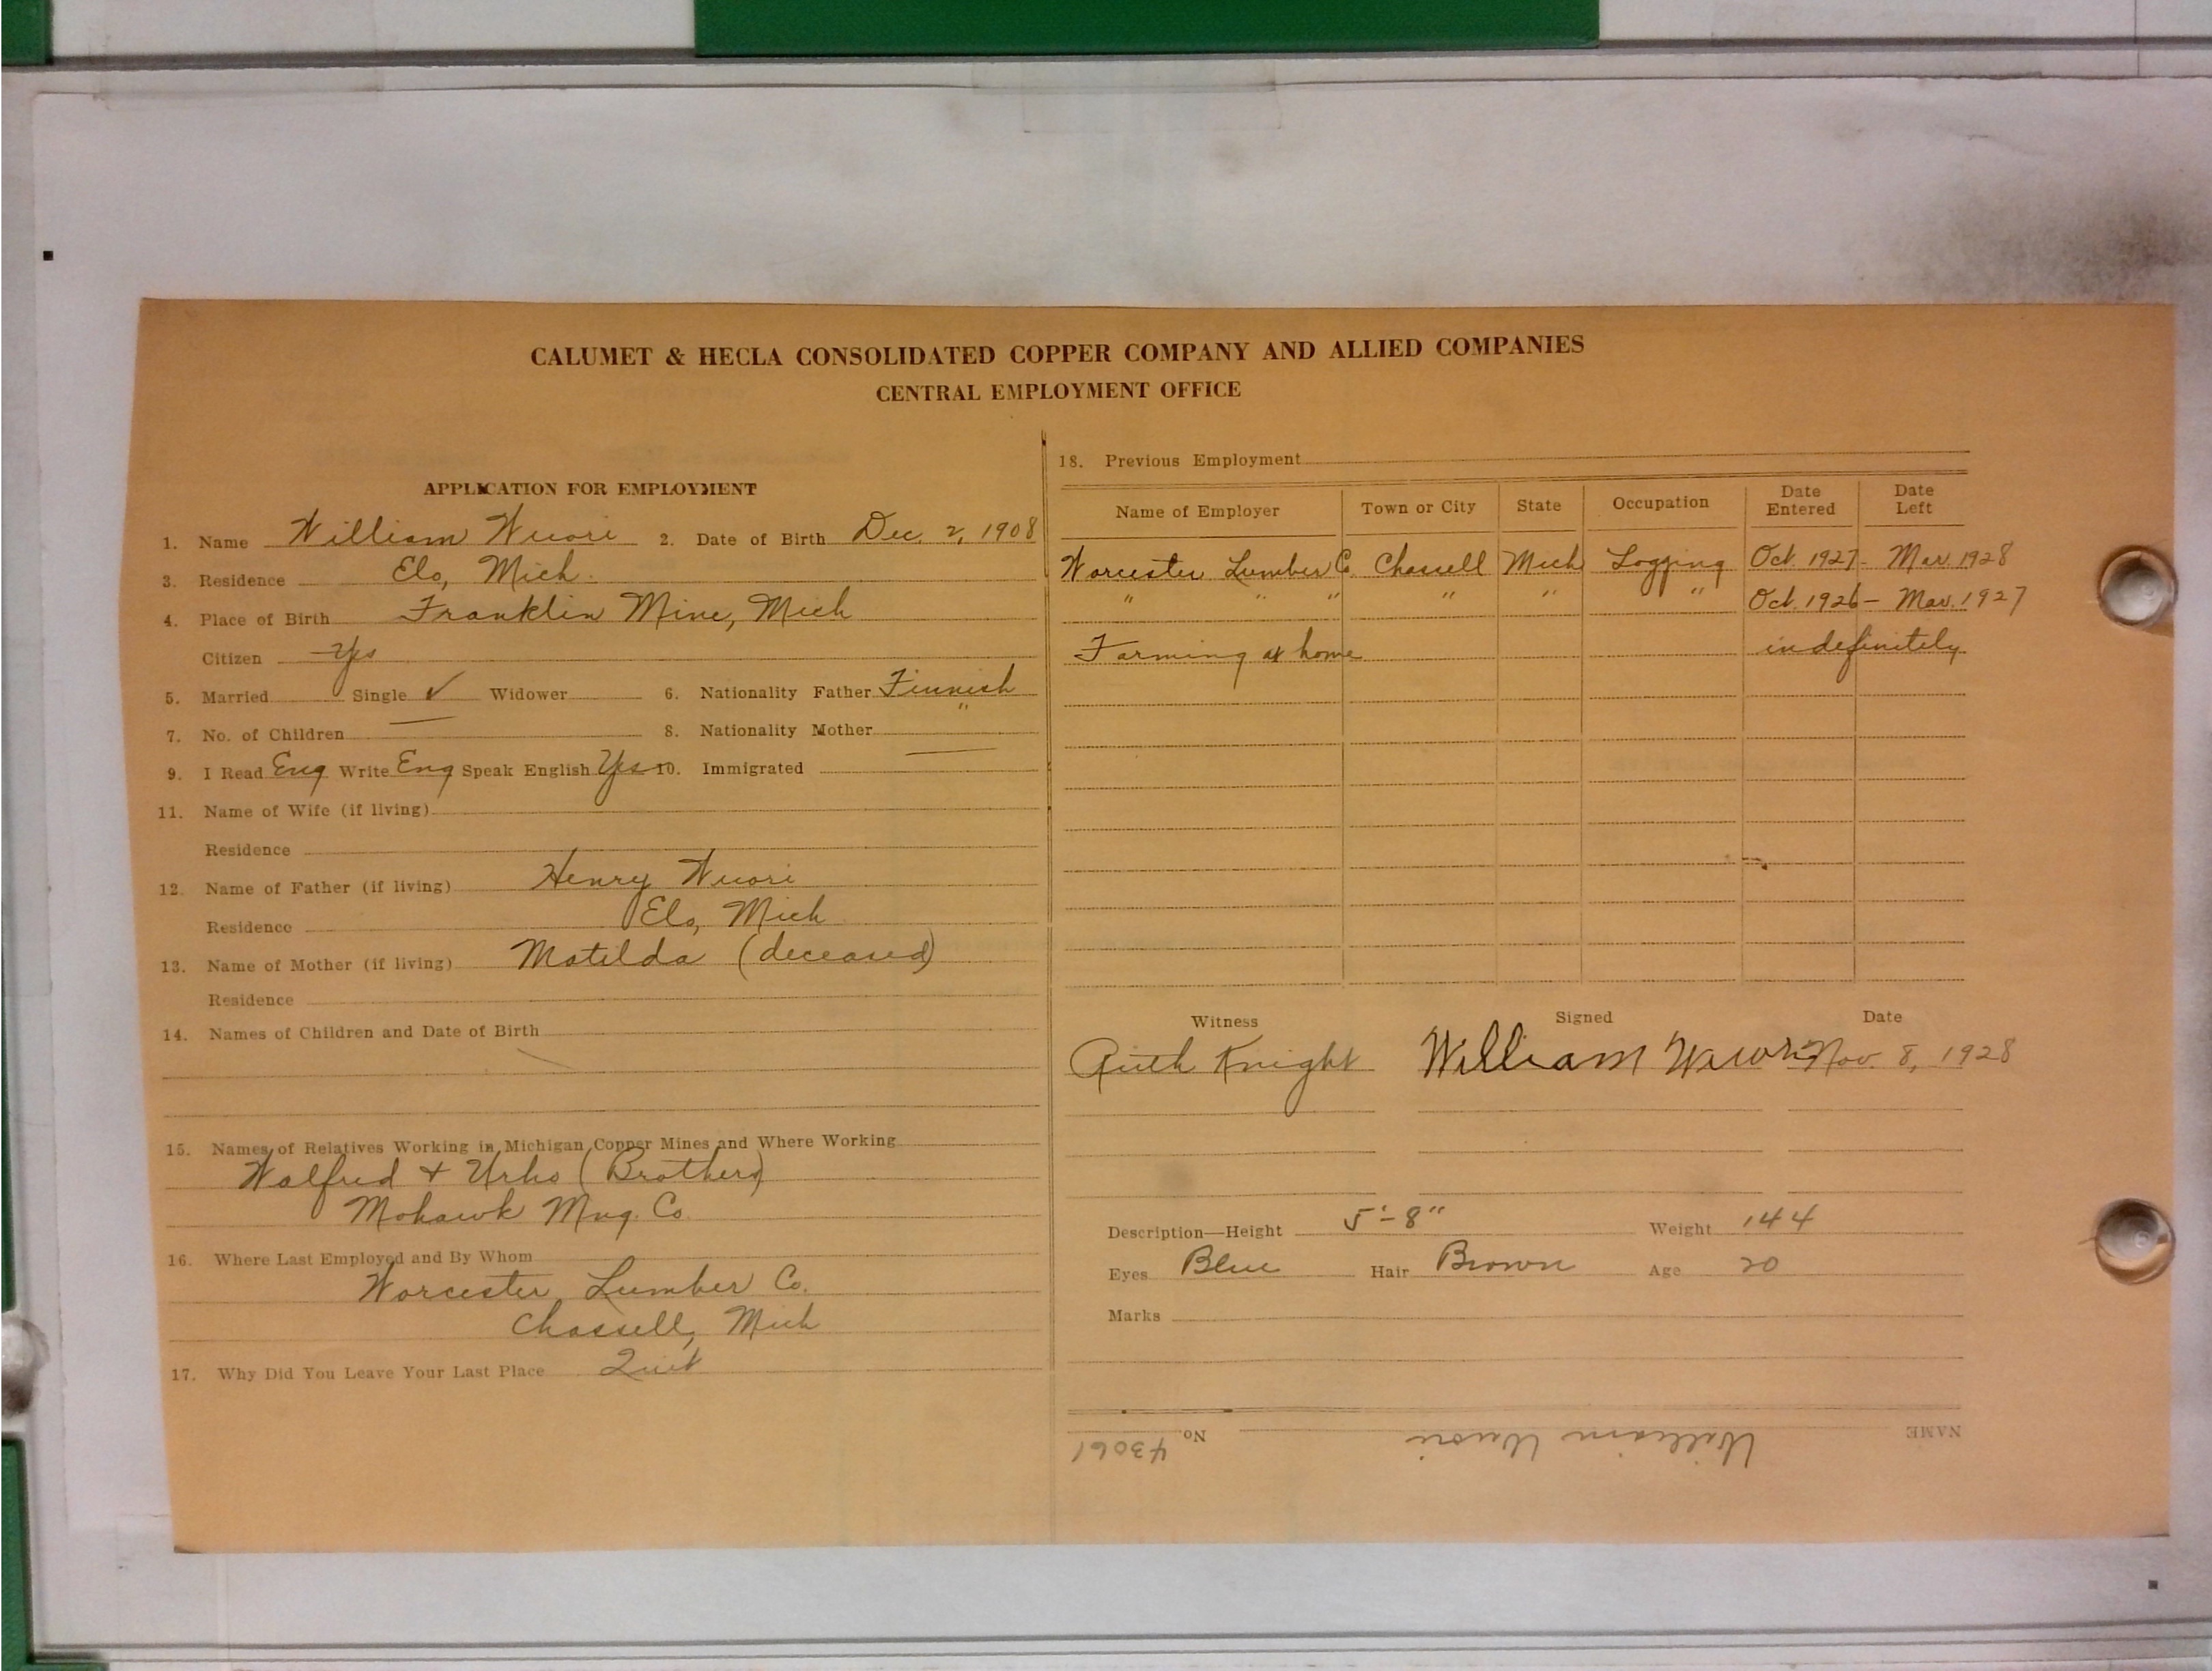 CALUMET & HECLA CONSOLIDATED COPPER COMPANY AND ALLIED COMPANIES
CENTRAL EMPLOYMENT OFFICE
APPLICATION FOR EMPLOYMENT
1. Name William Wuori 2. Date of Birth Dec. 2, 1908
3. Residence Elo, Mich.
4. Place of Birth Franklin Mine, Mich
Citizen Yes
5. Married Single ✓ Widower 6. Nationality Father Finnish
7. No. of Children — 8. Nationality Mother "
9. I Read Eng Write Eng Speak English Yes 10. Immigrated —
11. Name of Wife (if living)
Residence
12. Name of Father (if living) Henry Wuori
Residence Elo, Mich
13. Name of Mother (if living) Matilda (deceased)
Residence
14. Names of Children and Date of Birth
15. Names of Relatives Working in Michigan Copper Mines and Where Working
Walfred + Urho (Brothers)
Mohawk Mng. Co.
16. Where Last Employed and By Whom
Worcester Lumber Co.
Chassell, Mich
17. Why Did You Leave Your Last Place Quit
18. Previous Employment
Name of Employer Town or City State Occupation Date Entered Date Left
Worcester Lumber Co. Chassell Mich Logging Oct. 1927 - Mar. 1928
" " " " " " Oct. 1926 - Mar. 1927
Farming at home indefinitely
Witness Signed Date
Ruth Knight William Wuori Nov. 8, 1928
Description—Height 5'-8" Weight 144
Eyes Blue Hair Brown Age 20
Marks
NAME William Wuori No 43061